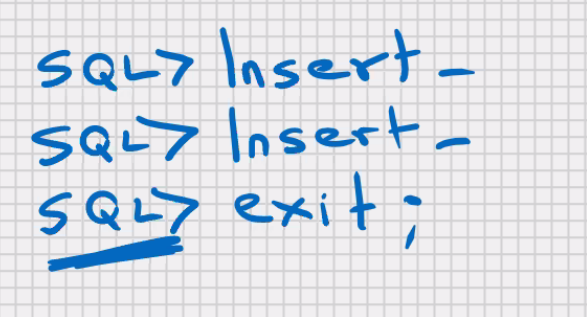 SQL> Insert_
SQL> Insert_
SQL> exit;